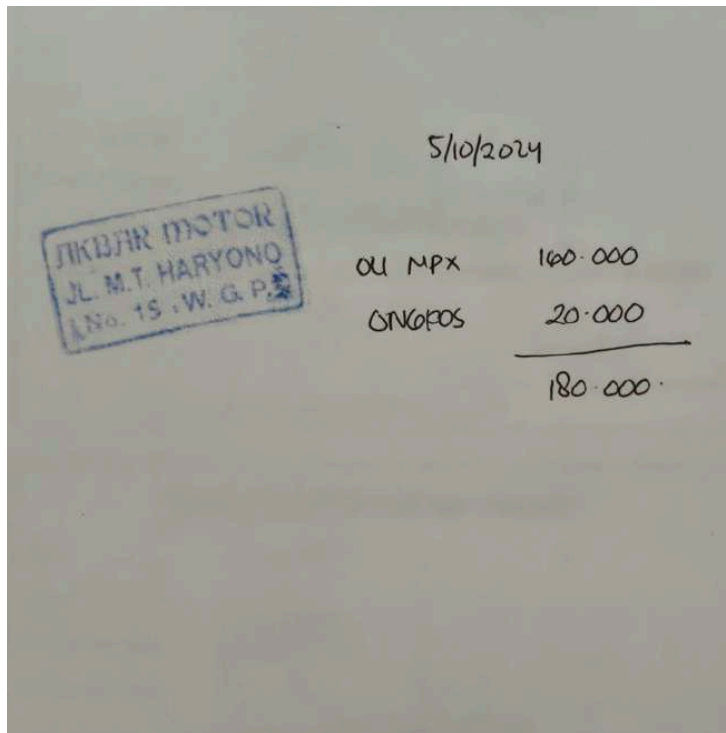 5/10/2024
AKBAR MOTOR
JL. M.T. HARYONO
No. 15 . W. G. P.
OLI MPX 160.000
ONGKOS 20.000
180.000.